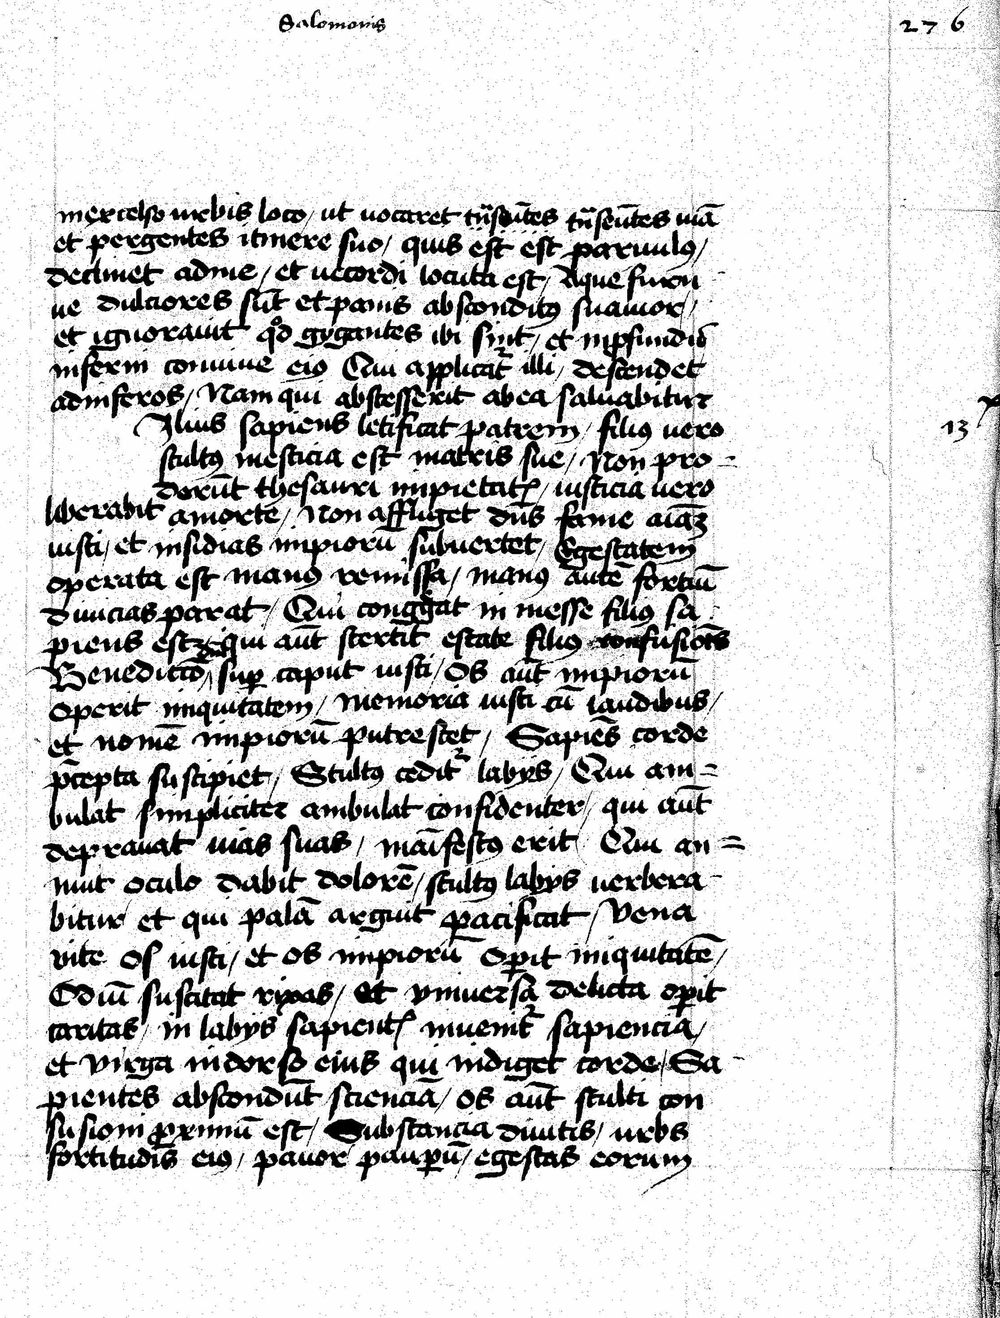 Salomonis
276
inexcelso urbis loco / ut vocaret tn̄seūtes tn̄seūtes viā
et pergentes itinere suo / quis est est parvulus /
declinet adme / et vecordi locuta est / Aque furti
ve dulciores sūt et panis absconditus suavior /
et ignoravit qd̄ gygantes ibi sint / et inprofundis
inferni convive eius Qui applicatr̄ illi / descendet
adinferos / Nam qui abscesserit abea salvabitur
Ilius sapiens letificat patrem / filius vero
13
stultus mesticia est matris sue / Non pro=
derūt thesauri impietatis / iusticia vero
liberabit amorte / Non affliget dn̄s fame aīaȝ
iusti / et insidias impiorū subvertet / Egestatem
operata est manus remissa / manus autē fortiū
divicias parat / Qui cong̅gat in messe filius sa
piens est qui aūt stertit estate filius confusiōis
Benedictio / sup̄ caput iusti / Os aūt impiorū
operit iniquitatem / memoria iusti cū laudibus /
et nomē impiorū putrescet / Sapiēs corde
p̄cepta suscipiet / Stultus ceditr̄ labijs / Qui am=
bulat simpliciter ambulat confidenter / qui aūt
depravat vias suas / māifestus erit / Qui an=
nuit oculo dabit dolorē / stultus labijs verbera
bitur et qui palā arguit pacificat / Vena
vite os iusti / et os impiorū op̄it iniquitatē /
Odiū suscitat rixas / et universa delicta op̄it
caritas / in labijs sapientis invenitr̄ sapiencia /
et virga indorso eius qui indiget corde / Sa
pientes abscondūt scienciā / os aūt stulti con
fusioni proximū est / Substancia divitis / urbs
fortitudīs eius / pavor paup̄ū / egestas eorum